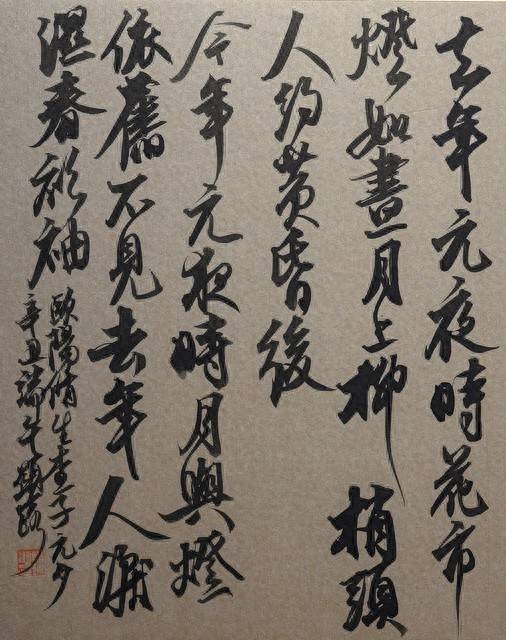 去年元夜時花市
燈如晝月上柳梢頭
人約黄昏後
今年元夜時月與燈
依舊不見去年人淚
濕春衫袖
歐陽脩生查子元夕
辛丑端午